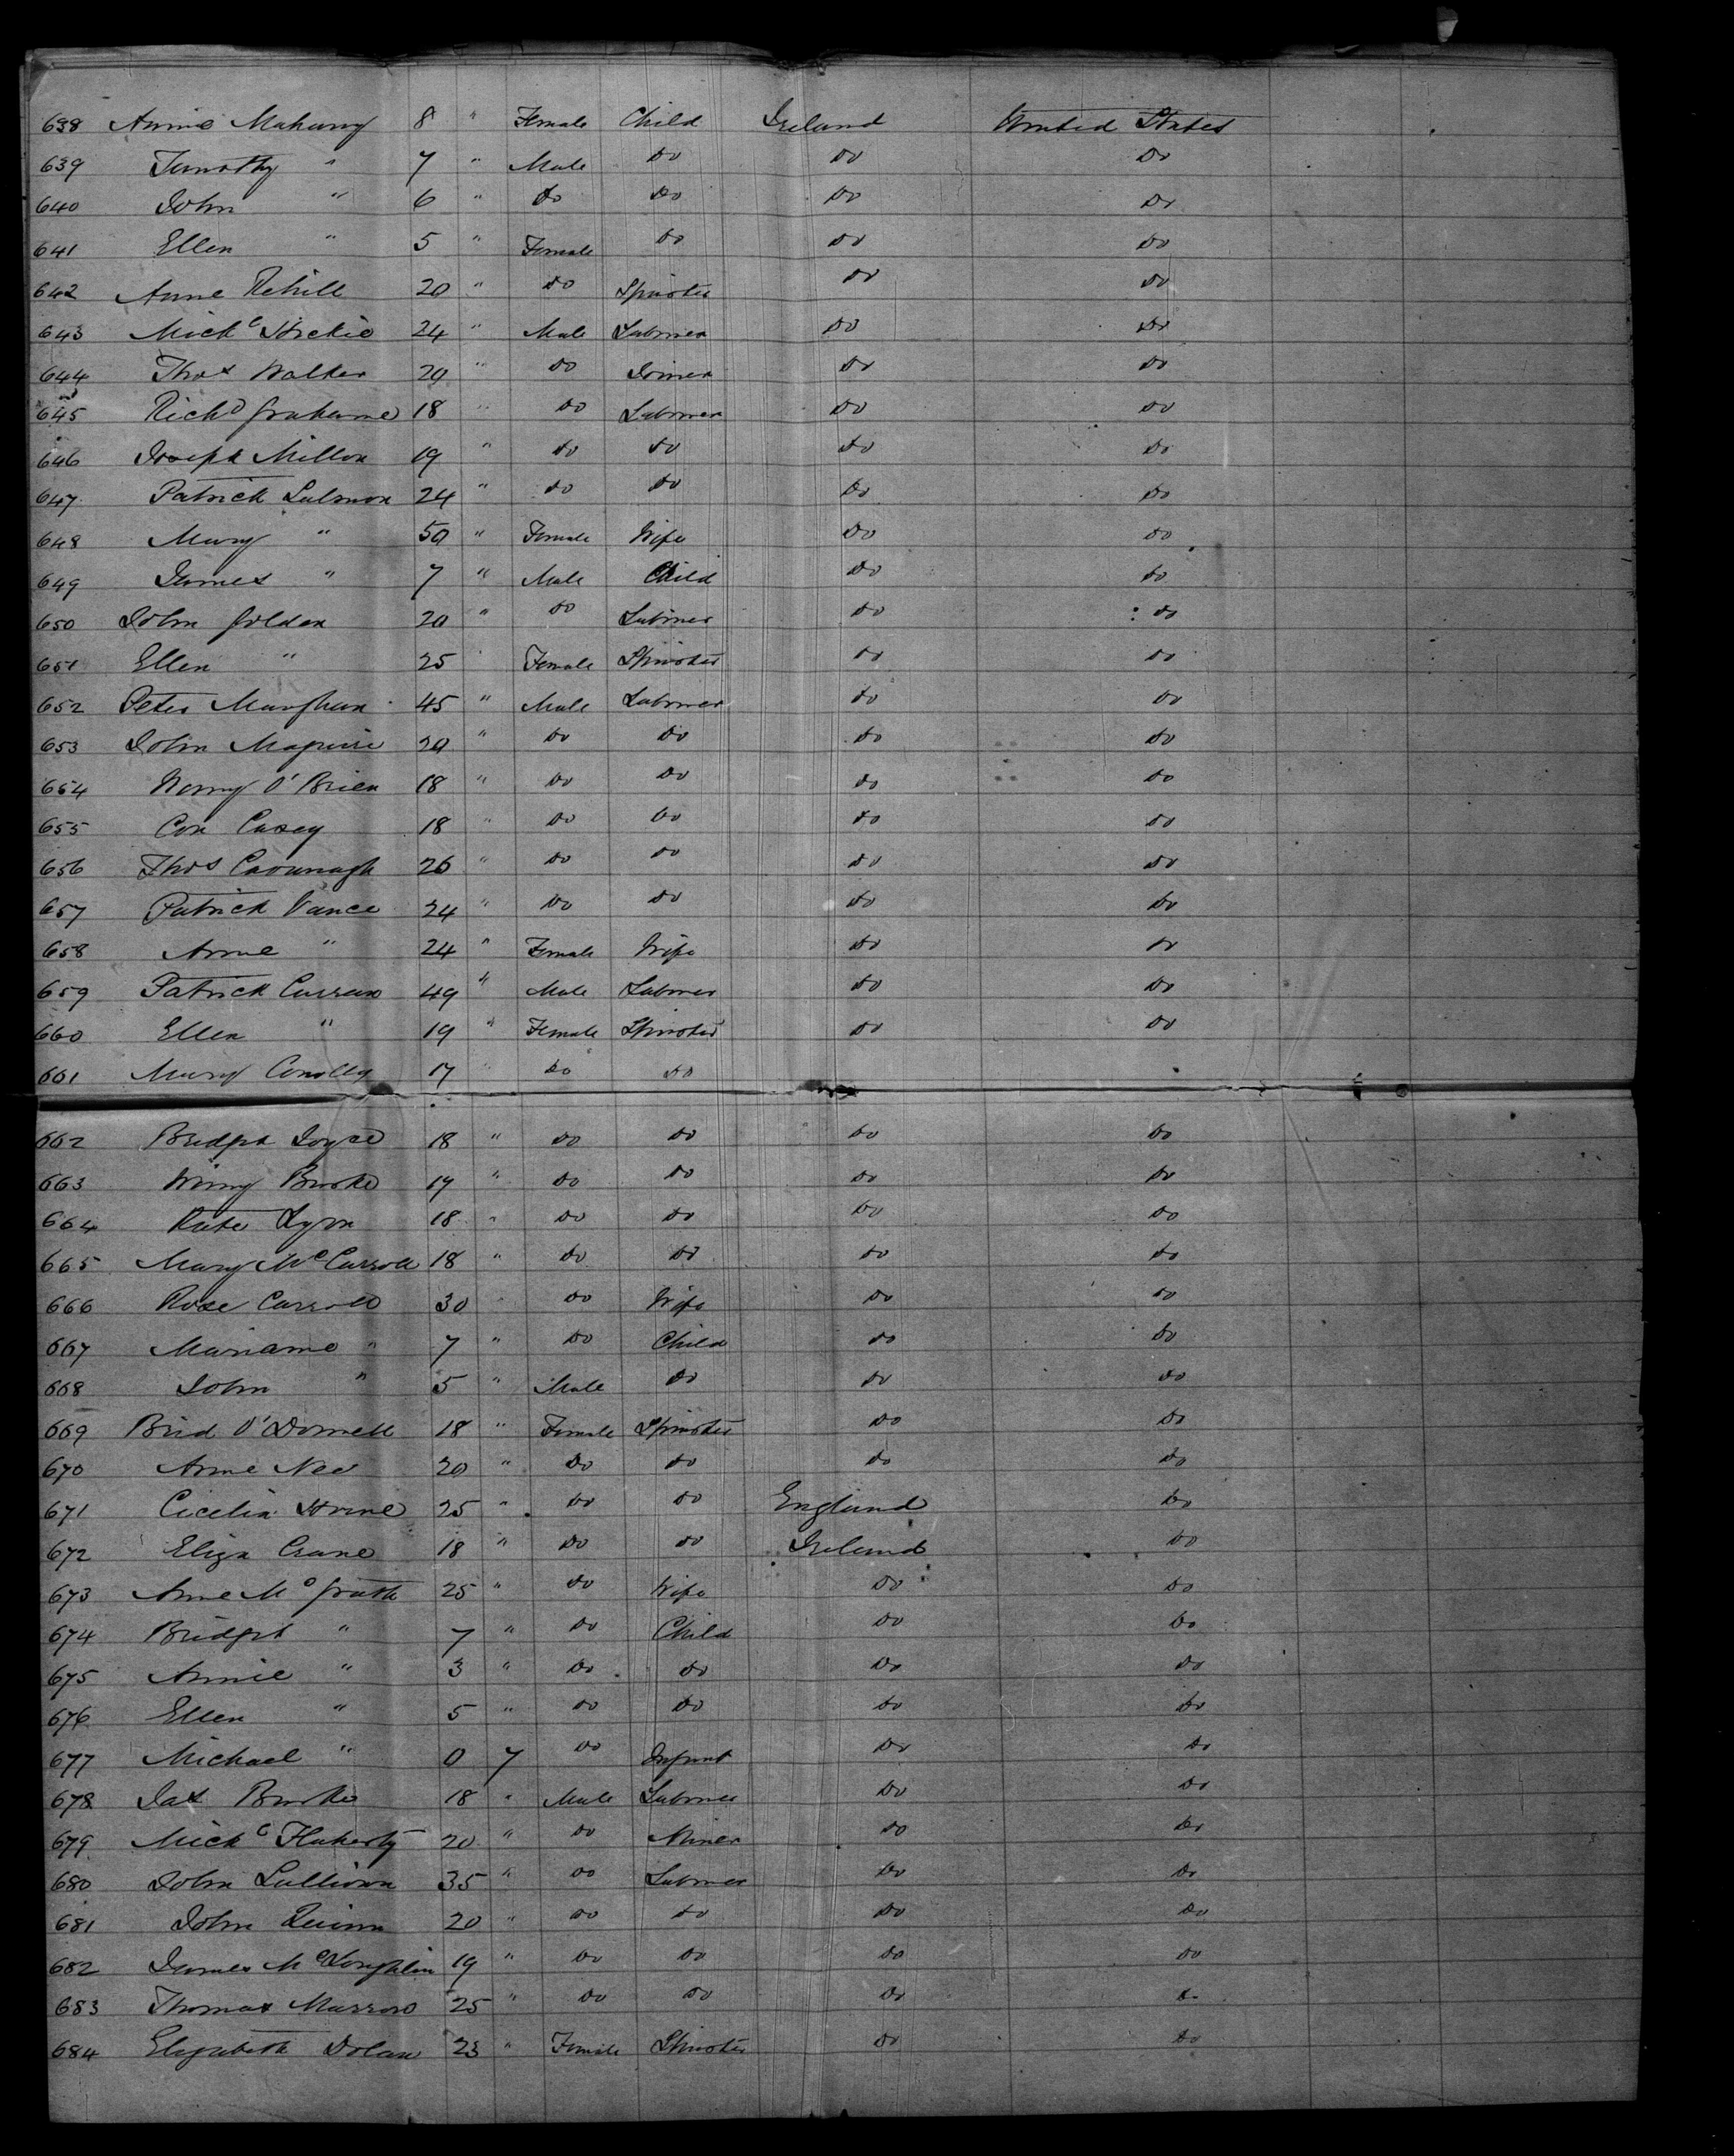 638 Annie Mahany 8 " Female Child Ireland United States
639 Timothy " 7 " Male Do Do Do
640 John " 6 " Do Do Do Do
641 Ellen " 5 " Female Do Do Do
642 Anne Rehill 20 " Do Spinster Do Do
643 Mick Hickie 24 " Male Labourer Do Do
644 Thos Walker 20 " Do Joiner Do Do
645 Richd Grahame 18 " Do Labourer Do Do
646 Joseph Millon 19 " Do Do Do Do
647 Patrick Salmon 24 " Do Do Do Do
648 Mary " 50 " Female Wife Do Do
649 James " 7 " Male Child Do Do
650 John Golden 20 " Do Labourer Do Do
651 Ellen " 25 " Female Spinster Do Do
652 Peter Maughan 45 " Male Labourer Do Do
653 John Maguire 20 " Do Do Do Do
654 O'Brien 18 " Do Do Do Do
655 Con Casey 18 " Do Do Do Do
656 Thos Cavanagh 26 " Do Do Do Do
657 Patrick Vance 24 " Do Do Do Do
658 Anne " 24 " Female Wife Do Do
659 Patrick Curran 49 " Male Labourer Do Do
660 Ellen " 19 " Female Spinster Do Do
661 Mary Conolly 17 " Do Do
662 Bridget Joyce 18 " Do Do Do Do
663 Winny Burke 17 " Do Do Do Do
664 Kate Lyon 18 " Do Do Do Do
665 Mary McCarroll 18 " Do Do Do Do
666 Rose Carroll 30 " Do Wife Do Do
667 Marianne " 7 " Do Child Do Do
668 John " 5 " Male Do Do Do
669 Brid O'Donnell 18 " Female Spinster Do Do
670 Anne Nee 20 " Do Do Do Do
671 Cicelia Horne 25 " Do Do England Do
672 Eliza Crane 18 " Do Do Ireland Do
673 Anne McGrath 25 " Do Wife Do Do
674 Bridget " 7 " Do Child Do Do
675 Annie " 3 " Do Do Do Do
676 Ellen " 5 " Do Do Do Do
677 Michael " 0 7 Do Infant Do Do
678 Jas Burke 18 " Male Labourer Do Do
679 Mick Flaherty 20 " Do Miner Do Do
680 John Sullivan 35 " Do Labourer Do Do
681 John Quinn 20 " Do Do Do Do
682 James McLoughlin 19 " Do Do Do Do
683 Thomas Marrow 25 " Do Do Do Do
684 Elizabeth Dolan 23 " Female Spinster Do Do